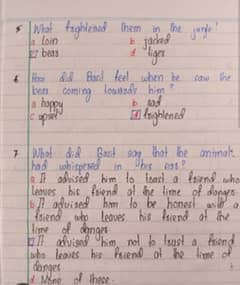 5 What frightened them in the jungle?
a loin b jackal
c bear d tiger
6 How did Basil feel when he saw the
bear coming towards him?
a happy b sad
c upset d frightened
7 What did Basil say that the animal
had whispered in his ears?
a It advised him to trust a friend who
leaves his friend at the time of danger
b It advised him to be honest with a
friend who leaves his friend at the
time of danger
c It advised him not to trust a friend
who leaves his friend at the time of
danger
d None of these.